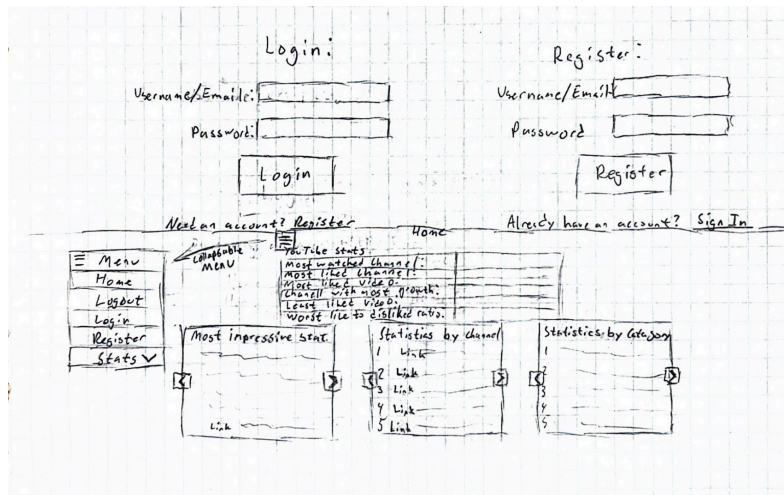 Login:
Username/Emaile:
Password:
Login
Need an account? Register
Register:
Username/Email
Password
Register
Already have an account? Sign In
Menu
Home
Logout
Login
Register
Stats
Collapsable
Menu
Home
YouTube stats
Most watched Channel:
Most liked Channel:
Most liked Video:
Chanell with most growth:
Least liked Video:
Worst like to disliked ratio.
Most impressive stat.
Link
Statistics by Channel
1 Link
2 Link
3 Link
4 Link
5 Link
Statistics by Category
1
2
3
4
5